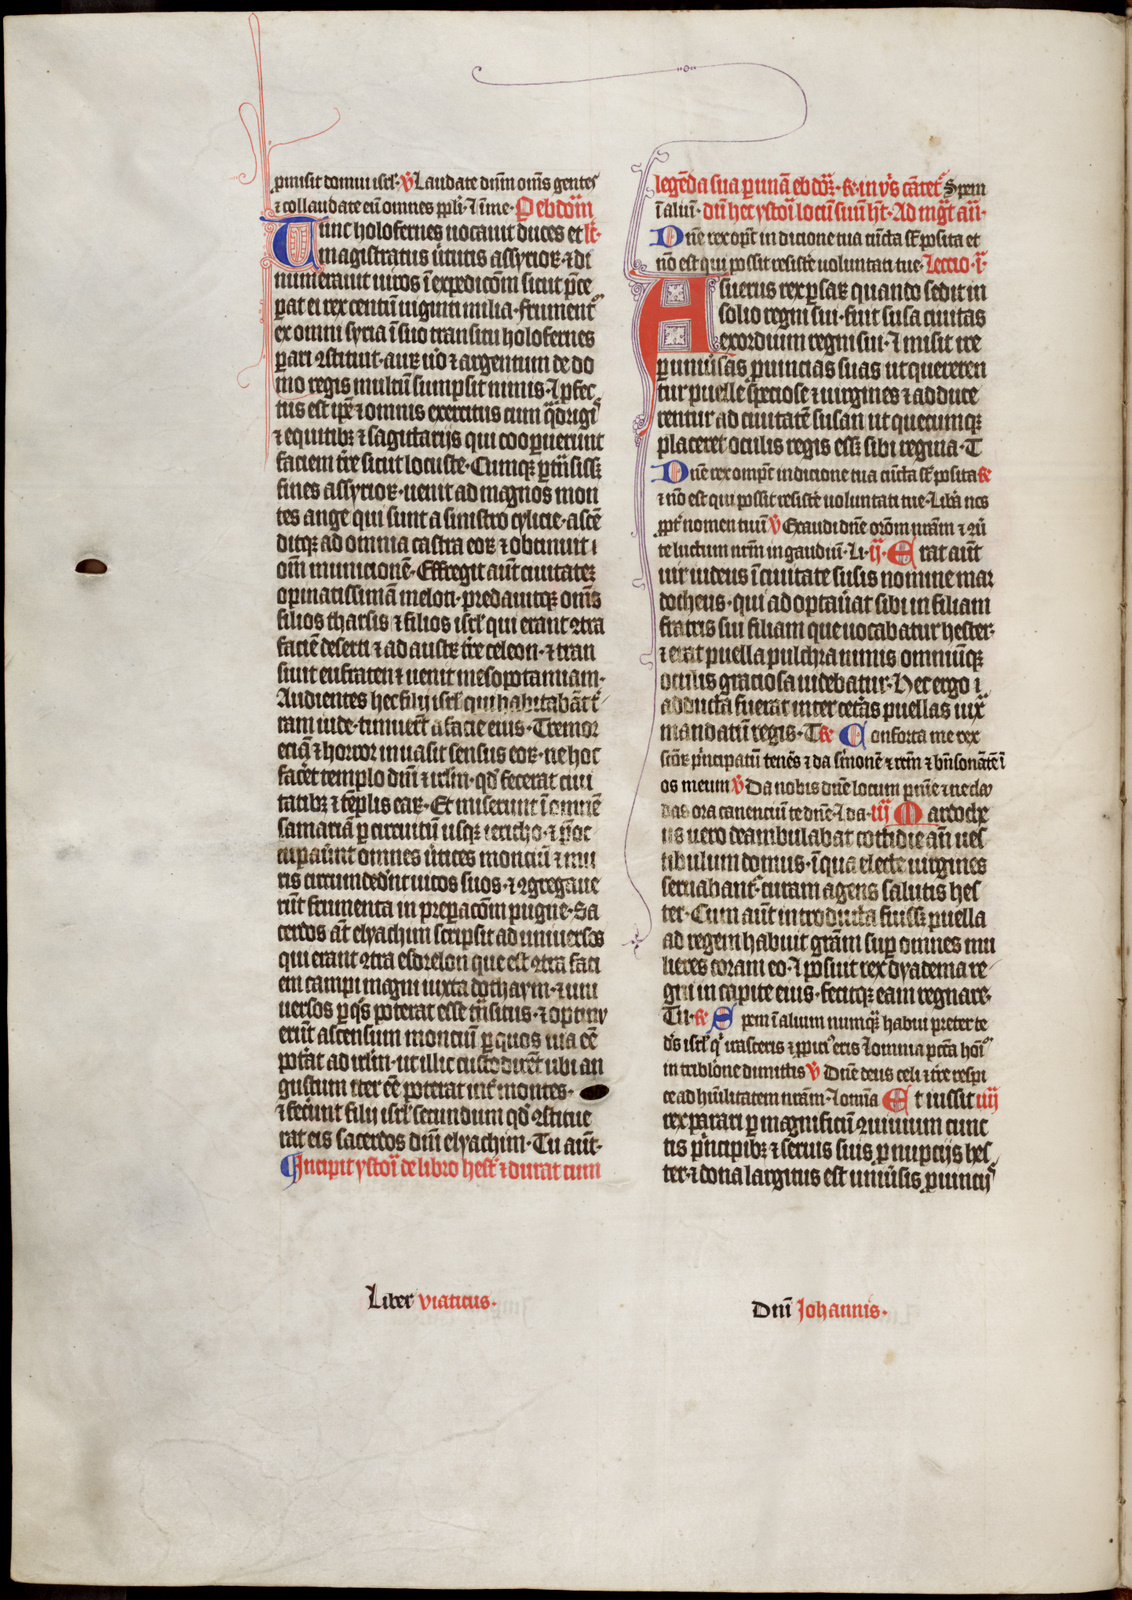 ꝓmisit domui isrl'. ℣ Laudate dn̄m om̄s gentes
⁊ collaudate eū omnes ppl'i. ⁊ ime. P ebdom̄
Tunc holofernes uocauit duces et lc̄.
magistratus u'tutis assyrioꝝ. ⁊ di
numerauit uiros ī expedicōm sicut p̄ce
ꝑat ei rex centū uiginti milia. frument'
ex omni syria ī suo transitu holofernes
ꝑari ꝯstituit. auꝝ u'o ⁊ argentum de do
mo regis multū sumpsit nimis. ⁊ ꝓfec
tus est ip̄e ⁊ omnis exercitus cum q̄drigis
⁊ equitibꝫ ⁊ sagittarijs qui cooꝑuerunt
faciem tr̄e sicut locuste. Cumqꝫ ꝑtn̄sissꝫ
fines assyrioꝝ. uenit ad magnos mon
tes ange qui sunt a sinistro cylicie. ascē
ditqꝫ ad omnia castra eoꝝ ⁊ obtinuit i
om̄ municionē. Effregit aūt ciuitateꝫ
opinatissimā meloti. predauitqꝫ om̄s
filios tharsis ⁊ filios isrl' qui erant ꝯtra
faciē deserti ⁊ ad austꝝ tr̄e celeon. ⁊ tran
siuit eufraten ⁊ uenit mesopotamiam.
Audientes hec filij isrl' qui habitabāt t'
ram iude. timuer̄t a facie eius. Tremor
eciā ⁊ horror inuasit sensus eoꝝ. ne hoc
facēt templo dn̄i ⁊ irl'm. qd' fecerat ciui
tatibꝫ ⁊ tēplis eaꝝ. Et miserunt ī omnē
samariā ꝑ circuitū usqꝫ iericho. ⁊ p̄oc
cupauūt omnes u'tices monciū ⁊ mu
ris circumded'nt uicos suos. ⁊ ꝯgregaue
rūt frumenta in prepacōm pugne. Sa
cerdos āt elyachim scripsit ad uniuersos
qui erant ꝯtra esdrelon que est ꝯtra faci
em campi magni iuxta dothaym. ⁊ uni
uersos ꝑ q̄s poterat esse tn̄situs. ⁊ optiny
erūt ascensum monciū ꝑ quos uia eē
pot'at ad irl'm. ut illic custodirēt ubi an
gustum iter eē poterat int' montes.
⁊ fecūnt filij isrl' secundum qd' ꝯstitue
rat eis sacerdos dn̄i elyachim. Tu aūt.
Incipit ystor̄ de libro hest' ⁊ durat cum
legēda sua ꝑ unā ebdōꝫ. ⁊ in v̄s cātet'. Spem
ī aliū. dū hec ystor̄ locū suū h̄t. Ad mg̅t an̄.
Dn̄e rex op̄t in dicione tua cūcta sc̄ posita et
nō est qui possit resistē voluntati tue. Leccio. i.
Asuerus rex ꝑsaꝝ quando sedit in
solio regni sui. fuit susa ciuitas
exordium regni sui. ⁊ misit rex
ꝑ uniu'sas ꝓuincias suas ut queren
tur puelle speciose ⁊ uirgines ⁊ adduce
rentur ad ciuitatē susan ut quecumqꝫ
placeret oculis regis essꝫ sibi regina. T
Dn̄e rex omp̄t in dicione tua cūcta sc̄ posita ℟
⁊ nō est qui possit resistē voluntati tue. Lib̄a nos
ꝓpt' nomen tuū ℣ Exaudi dn̄e or̄om nr̄am ⁊ ꝯū
te luctum nr̄m in gaudiū. Li. ij. Erat aūt
uir iudeus ī ciuitate susis nomine mar
docheus. qui adoptau'at sibi in filiam
fratris sui filiam que uocabatur hester.
⁊ erat puella pulchra nimis omniūqꝫ
oculis graciosa uidebatur. Hec ergo i
adducta fuerat inter cet'as puellas iux
mandatū regis. T ℟ Conforta me rex
scōꝝ p'ncipatū tenēs ⁊ da s'monē ⁊ rc̄m ⁊ bn̄ sonātē ī
os meum ℣ Da nobis dn̄e locum pn̄ie ⁊ ne clau
das ora canenciū te dn̄e. ⁊ da. iij Mardoche
us uero deambulabat cottidie an̄ ues
tibulum domus. ī qua electe uirgines
seruabant'. curam agens salutis hes
ter. Cum aūt introducta fuissꝫ puella
ad regem habuit gr̄am sup omnes mu
lieres coram eo. ⁊ posuit rex dyadema re
gni in capite eius. fecitqꝫ eam regnare.
Tu. ℟ Spem ī alium numqꝫ habui preter te
d's isrl' q' irasceris ⁊ ꝓpici' eris ⁊ omnia pctā hoī'
in tribl'one dimittis ℣ Dn̄e deus celi ⁊ tr̄e respi
ce ad hūilitatem nr̄am. ⁊ omīa Et iussit iiij
rex parari ꝑ magnificū ꝯuiuium cunc
tis p'ncipibꝫ ⁊ seruis suis ꝓ nupcijs hes
ter. ⁊ dona largitus est uniu'sis ꝓuincijs
Liber viaticus.
Dn̄i Johannis.